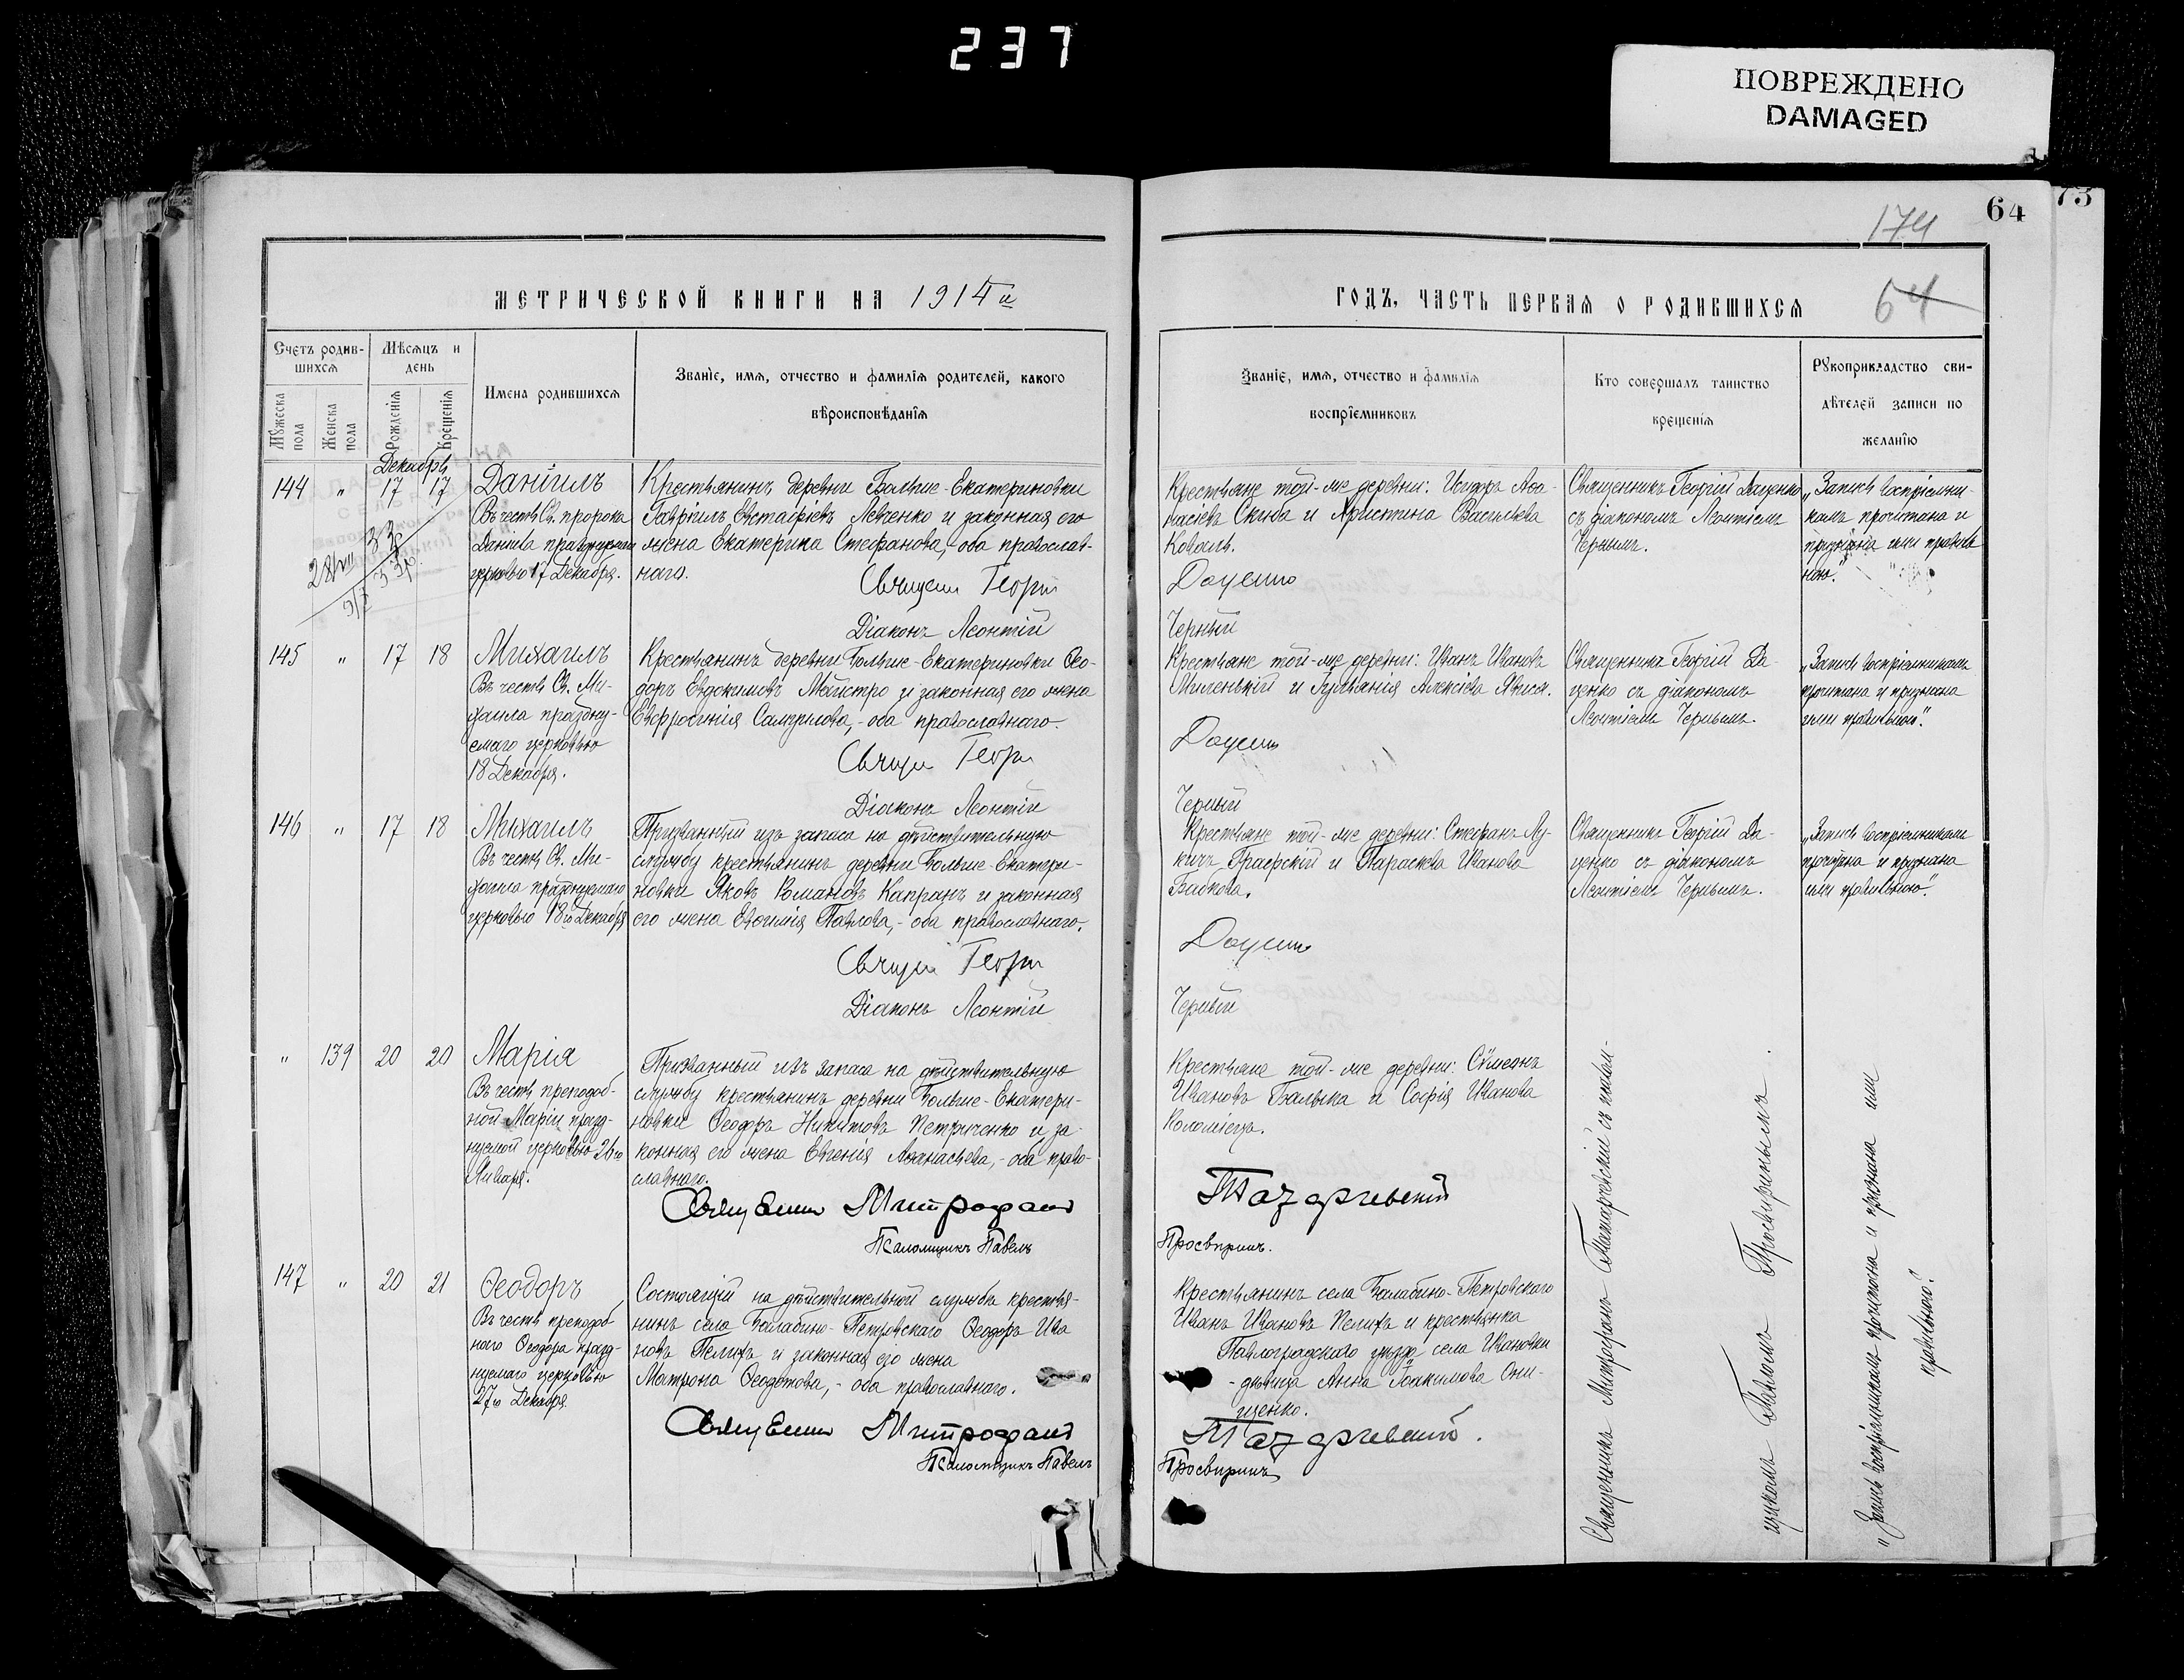 237
ПОВРЕЖДЕНО
DAMAGED
64
73
174
64
МЕТРИЧЕСКОЙ КНИГИ НА 1914й
ГОДЪ, ЧАСТЬ ПЕРВАЯ О РОДИВШИХСЯ
Счетъ родив-
шихся
Мѣсяцъ и
день
Мужеска
пола
Женска
пола
Рожденія
Крещенія
Имена родившихся
Званіе, имя, отчество и фамилія родителей, какого
вѣроисповѣданія
Званіе, имя, отчество и фамилія
воспріемниковъ
Кто совершалъ таинство
крещенія
Рукоприкладство сви-
дѣтелей записи по
желанію
Декабрь
144 " 17 17
Даніилъ
Въ честь Св. пророка
Даніила празднуемаго
церковью 17 Декабря.
Крестьянинъ деревни Больше-Екатериновки
Гавріилъ Евстафіевъ Левченко и законная его
жена Екатерина Стефанова,- оба православ-
наго.
Священ Георгій
Діаконъ Леонтій
Крестьяне той-же деревни: Исидоръ Аѳа-
насіевъ Скиба и Христина Васильева
Коваль.
Даценко
Черный
Священникъ Георгій Даценко
съ діакономъ Леонтіемъ
Чернымъ.
„Запись воспріемни-
камъ прочитана и
признана ими правиль
ною."
145 " 17 18
Михаилъ
Въ честь Св. Ми-
хаила праздну-
емаго церковью
18 Декабря.
Крестьянинъ деревни Больше-Екатериновки Ѳео-
доръ Евдокимовъ Майстро и законная его жена
Евфросинія Самуилова,- оба православнаго.
Свящ Георг
Діаконъ Леонтій
Крестьяне той-же деревни: Иванъ Ивановъ
Миленькій и Гуліанія Алексіева
Даценко
Черный
Священникъ Георгій Да-
ценко съ діакономъ
Леонтіемъ Чернымъ.
„Запись воспріемникамъ
прочитана и признана
ими правильною."
146 " 17 18
Михаилъ
Въ честь Св. Ми-
хаила празднуемаго
церковью 18го Декабря
Призванный изъ запаса на дѣйствительную
службу крестьянинъ деревни Больше-Екатери-
новки Яковъ Романовъ Капранъ и законная
его жена Евфимія Павлова,- оба православнаго.
Свящ Георг
Діаконъ Леонтій
Крестьяне той-же деревни: Стефанъ Лу-
кичъ Граерскій и Параскева Иванова
Бабкова.
Даценко
Черный
Священникъ Георгій Да-
ценко съ діакономъ
Леонтіемъ Чернымъ.
„Запись воспріемникамъ
прочитана и признана
ими правильною."
" 139 20 20
Марія
Въ честь преподоб-
ной Маріи празд-
нуемой церковью 26го
Января.
Призванный изъ запаса на дѣйствительную
службу крестьянинъ деревни Больше-Екатери-
новки Ѳеодоръ Никитовъ Петриченко и за-
конная его жена Евгенія Аѳанасьева,- оба право-
славнаго.
Священникъ Митрофанъ
Псаломщикъ Павелъ
Крестьяне той-же деревни: Сѵмеонъ
Ивановъ Балыка и Софія Иванова
Коломіецъ.
Татаржевскій
Просвиринъ.
147 " 20 21
Ѳеодоръ
Въ честь преподоб
наго Ѳеодора празд-
нуемаго церковью
27го Декабря
Состоящій на дѣйствительной службѣ крестья-
нинъ села Балабино-Петровскаго Ѳеодоръ Ива
новъ Пелихъ и законная его жена
Матрона Ѳеодотова,- оба православнаго.
Священникъ Митрофанъ
Псаломщикъ Павелъ
Крестьянинъ села Балабино-Петровскаго
Иванъ Ивановъ Пелихъ и крестьянка
Павлоградскаго уѣзда села Ивановки
- дѣвица Анна Іоакимова Они-
щенко.
Татаржевскій.
Просвиринъ
Священникъ Митрофанъ Татаржевскій съ псалом-
щикомъ Павломъ Просвиринымъ.
„Запись воспріемникамъ прочитана и признана ими
правильною."